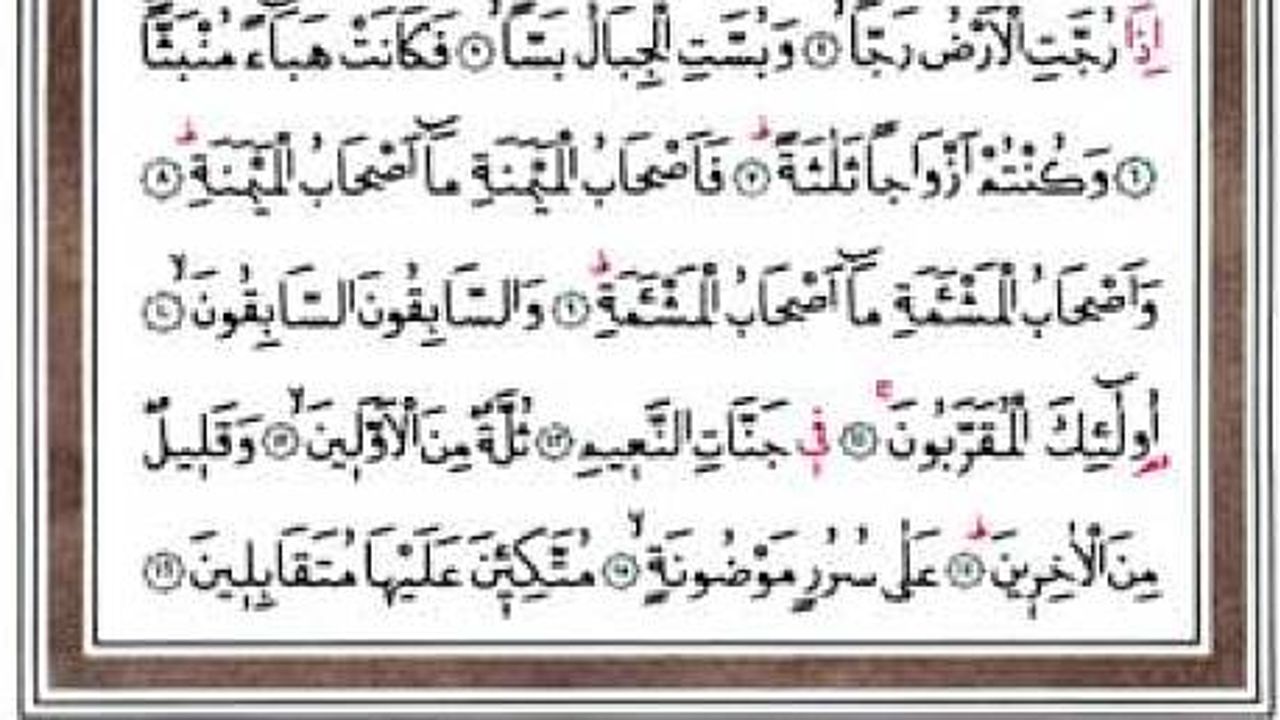 اِذَا رُجَّتِ الْاَرْضُ رَجًّاۙ ﴿٤﴾ وَبُسَّتِ الْجِبَالُ بَسًّاۙ ﴿٥﴾ فَكَانَتْ هَبَٓاءً مُنْبَثًّاۙ
﴿٦﴾ وَكُنْتُمْ اَزْوَاجًا ثَلٰثَةًۜ ﴿٧﴾ فَاَصْحَابُ الْمَيْمَنَةِ مَٓا اَصْحَابُ الْمَيْمَنَةِۜ ﴿٨﴾
وَاَصْحَابُ الْمَشْـَٔمَةِ مَٓا اَصْحَابُ الْمَشْـَٔمَةِۜ ﴿٩﴾ وَالسَّابِقُونَ السَّابِقُونَۙ ﴿١٠﴾
اُو۬لٰٓئِكَ الْمُقَرَّبُونَۚ ﴿١١﴾ فِي جَنَّاتِ النَّعِيمِ ﴿١٢﴾ ثُلَّةٌ مِنَ الْاَوَّلِينَۙ ﴿١٣﴾ وَقَلِيلٌ
مِنَ الْاٰخِرِينَۜ ﴿١٤﴾ عَلٰى سُرُرٍ مَوْضُونَةٍۙ ﴿١٥﴾ مُتَّكِـِٔينَ عَلَيْهَا مُتَقَابِلِينَ ﴿١٦﴾